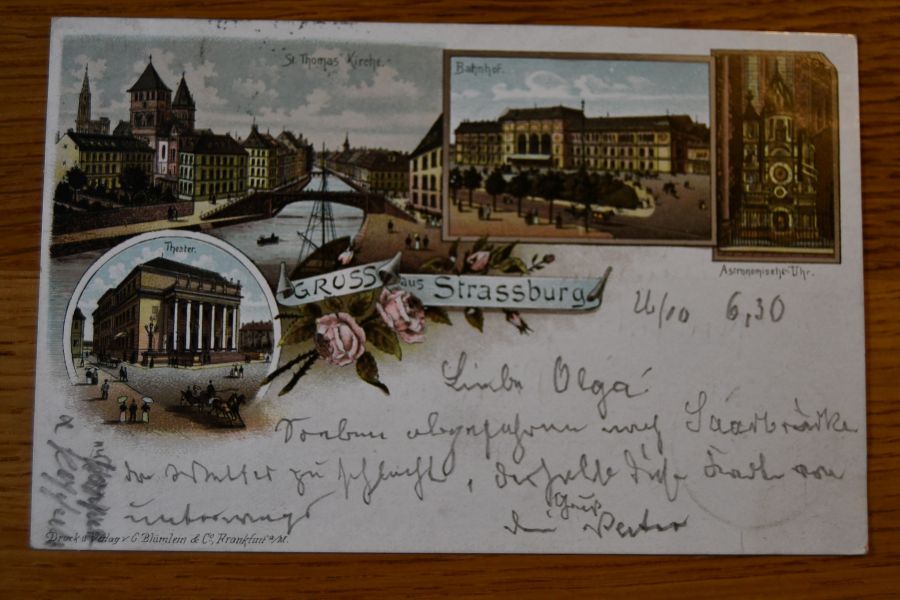 St. Thomas Kirche.
Bahnhof.
Astronomische-Uhr.
Theater.
GRUSS aus Strassburg
6,30
Liebe Olga
Soeben abgefahren nach Saarbrücken
da Wetter zu schlecht, deshalb diese Karte von
unterwegs Gruß
dein Vetter
Druck u. Verlag v. C. Blümlein & Co, Frankfurt a/M.